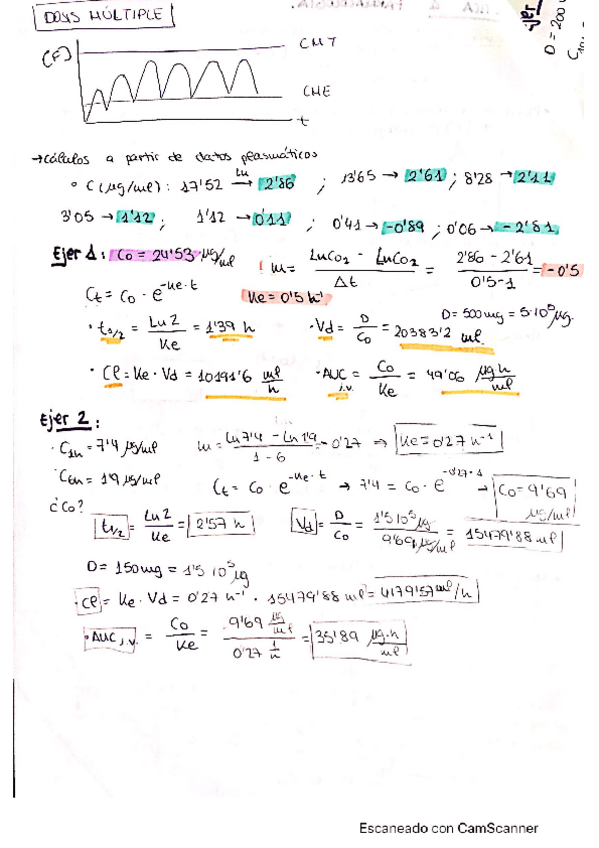 DOSIS MÚLTIPLE
[F]
CMT
CME
t
D = 200
→ cálculos a partir de datos plasmáticos
• C(µg/ml): 17'52 Ln→ 2'86 ; 13'65 → 2'61 ; 8'28 → 2'11
3'05 → 1'12 ; 1'12 → 0'11 ; 0'41 → -0'89 ; 0'06 → -2'81
Ejer 1: Co = 24'53 µg/ml m = LnCo2 - LnCo2 / Δt = 2'86 - 2'61 / 0'5-1 = -0'5
Ct = Co · e^-Ke·t Ke = 0'5 h^-1
• t1/2 = Ln2 / Ke = 1'39 h • Vd = D / Co = 20383'2 ml D = 500mg = 5·10^5 µg.
• Cl = Ke · Vd = 10191'6 ml/h • AUC i.v. = Co / Ke = 49'06 µg h / ml
Ejer 2:
• C1h = 7'4 µg/ml m = ln7'4 - Ln1'9 / 1 - 6 = -0'27 ⇒ Ke = 0'27 h^-1
C6h = 1'9 µg/ml Ct = Co · e^-Ke·t → 7'4 = Co · e^-0'27·1 → Co = 9'69 µg/ml
¿Co?
t1/2 = Ln2 / Ke = 2'57 h Vd = D / Co = 1'5 10^5 µg / 9'69 µg/ml = 15479'88 ml
D = 150mg = 1'5 10^5 µg
• Cl = Ke · Vd = 0'27 h^-1 · 15479'88 ml = 4179'57 ml/h
• AUC i.v. = Co / Ke = 9'69 µg/ml / 0'27 1/h = 35'89 µg·h / ml
Escaneado con CamScanner